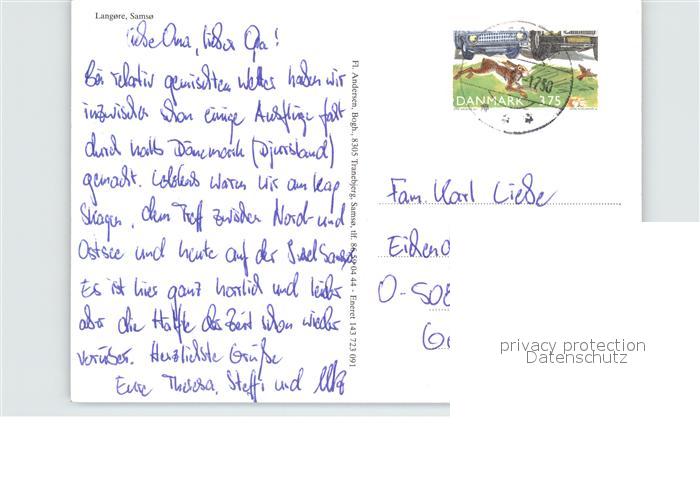 Langøre, Samsø
Liebe Oma, lieber Opa!
Bei relativ gemischtem Wetter haben wir
inzwischen schon einige Ausflüge fast
durch halb Dänemark (Djursland)
gemacht. waren wir am Kap
Skagen, dem Treff zwischen Nord- und
Ostsee und heute auf der Insel Samsø.
Es ist hier ganz herrlich und leider
aber die Hälfte der Zeit schon wieder
vorüber. Herzlichste Grüße
Eure Theresa, Steffi und
Fl. Andersen, Bogh., 8305 Tranebjerg, Samsø, tlf. 86 59 04 44 - Eneret 143 723 091
DANMARK 3.75
Fam. Karl Liebe
O-
privacy protection
Datenschutz